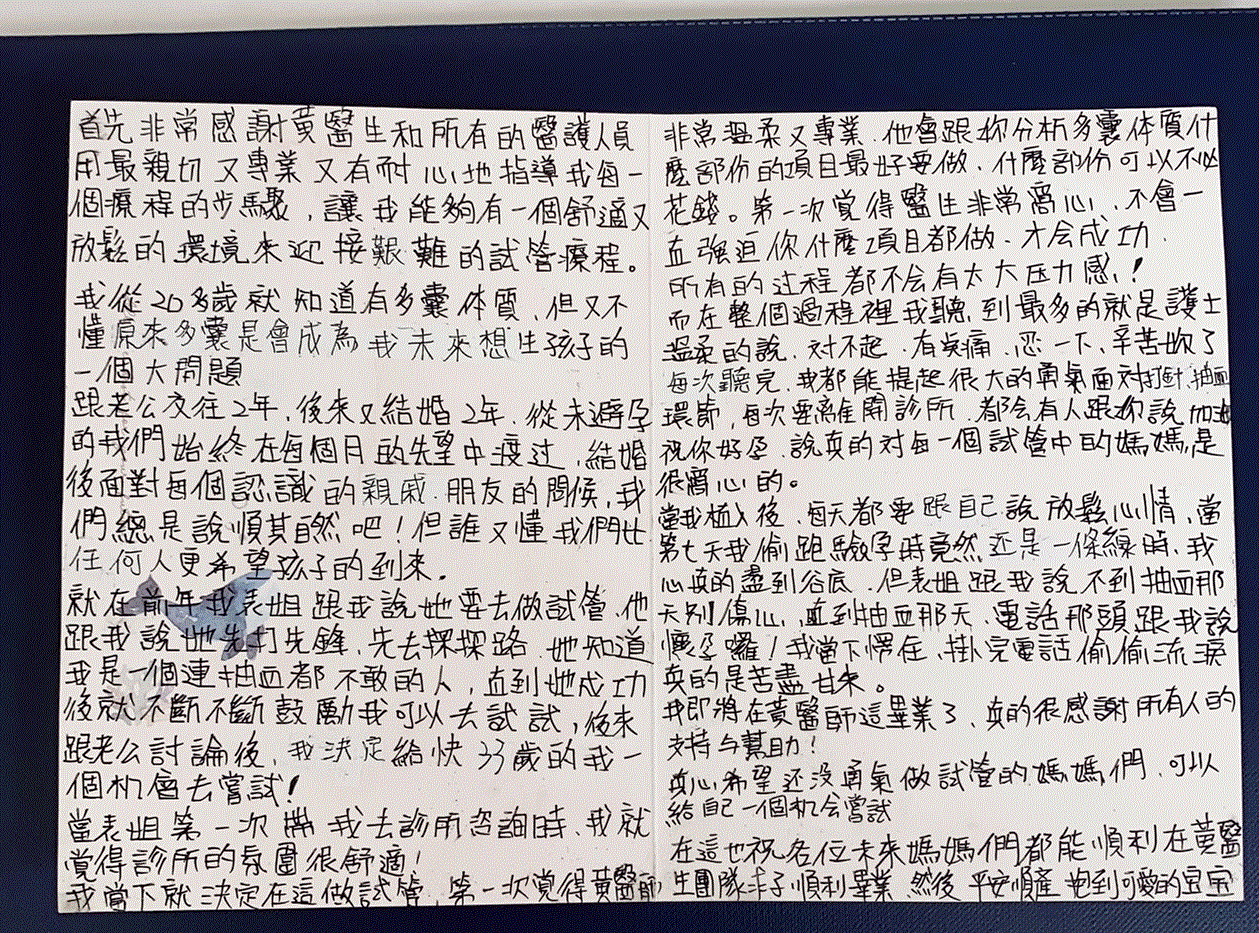 首先非常感謝黃醫生和所有的醫護人員
用最親切又專業又有耐心地指導我每一
個療程的步驟，讓我能夠有一個舒適又
放鬆的環境來迎接艱難的試管療程。
我從20多歲就知道有多囊体質，但又不
懂原來多囊是會成為我未來想生孩子的
一個大問題
跟老公交往2年，後來又結婚2年，從未避孕
的我們始終在每個月的失望中渡过，結婚
後面對每個認識的親戚、朋友的問候，我
們總是說順其自然吧！但誰又懂我們比
任何人更希望孩子的到來。
就在前年我表姐跟我說她要去做試管，他
跟我說她先打先鋒，先去探探路，她知道
我是一個連抽血都不敢的人，直到她成功
後就不斷不斷鼓勵我可以去試試，後來
跟老公討論後，我決定給快33歲的我一
個机會去嘗試！
當表姐第一次帶我去診所咨詢時，我就
覺得診所的氛圍很舒適！
我當下就決定在這做試管，第一次覺得黃醫師
非常溫柔又專業，他會跟妳分析多囊体質什
麼部份的項目最好要做，什麼部份可以不必
花錢。第一次覺得醫生非常窩心，不會一
直强迫你什麼項目都做，才会成功，
所有的过程都不会有太大压力感！
而在整個過程裡我聽到最多的就是護士
溫柔的說，对不起，有點痛，忍一下、辛苦妳了
每次聽完，我都能提起很大的勇氣面对打針、抽血
環節，每次要離開診所，都会有人跟妳說加油
祝你好孕，說真的对每一個試管中的媽媽是
很窩心的。
當我植入後，每天都要跟自己說放鬆心情，當
第七天我偷跑驗孕時竟然还是一條線時，我
心真的盪到谷底，但表姐跟我說不到抽血那
天別傷心，直到抽血那天，電話那頭跟我說
懷孕囉！我當下愣住，掛完電話偷偷流淚
真的是苦盡甘來。
我即將在黃醫師這畢業了，真的很感謝所有人的
支持与幫助！
真心希望还没勇氣做試管的媽媽們，可以
給自己一個机会嘗試
在這也祝各位未來媽媽們都能順利在黃醫
生團隊手順利畢業，然後平安順產抱到可愛的宝宝